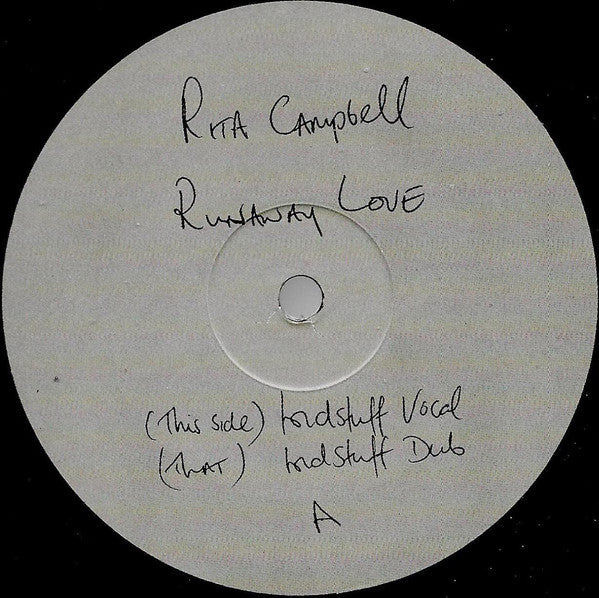 Rita Campbell
Runaway Love
(This side) Kidstuff Vocal
(That) Kidstuff Dub
A